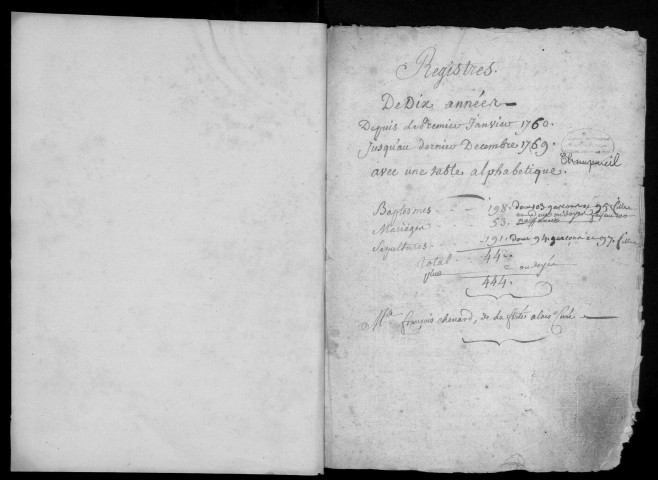 Registres.
De Dix années
Depuis le Premier Janvier 1760.
Jusqu'au dernier Decembre 1769.
avec une table alphabetique.
Baptesmes 198. dont 103 garcons et 95. filles
Mariages 53.
Sepultures 191. dont 94. garcons et 97. filles
Total 442.
plus 2 ondoyés
444.
françois chenard, alors Curé